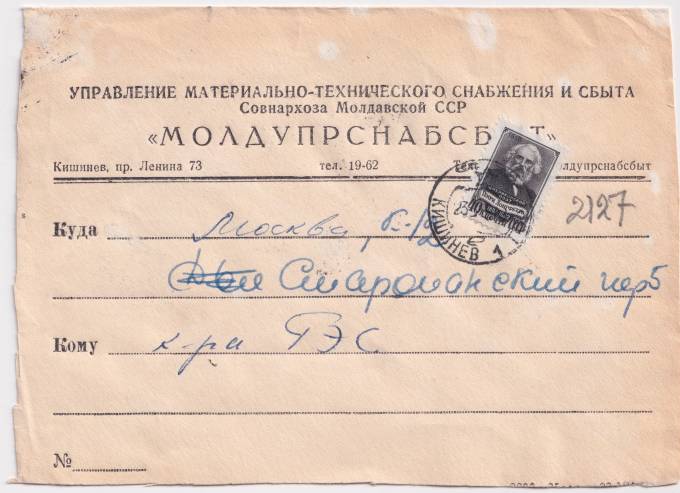 УПРАВЛЕНИЕ МАТЕРИАЛЬНО-ТЕХНИЧЕСКОГО СНАБЖЕНИЯ И СБЫТА
Совнархоза Молдавской ССР
«МОЛДУПРСНАБСБЫТ»
Кишинев, пр. Ленина 73 тел. 19-62 лдупрснабсбыт
КИШИНЕВ 1
2127
Куда Москва,
Старопанский пер 5
Кому к-ра ГЭС
№